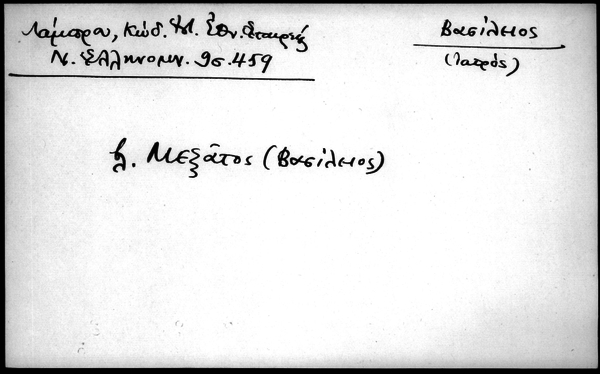 Λάμπρου, Κώδ. Ἱστ. Ἐθν. Ἑταιρείας
Ν. Ἑλληνομν. 9σ. 459
Βασίλειος
(ἰατρός)
βλ. Μεξᾶτος (Βασίλειος)